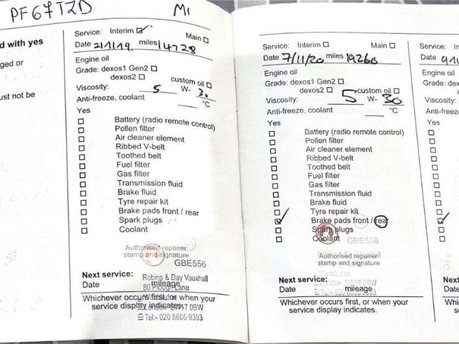 PF67TZD
M1
d with yes
ged or
ust not be
Service: Interim ☑ Main ☐
Date 21/1/19 miles 14728
Engine oil
Grade: dexos1 Gen2 ☐
dexos2 ☐ custom oil ☐
Viscosity: 5 W-
Anti-freeze, coolant °C
Yes
☐ Battery (radio remote control)
☐ Pollen filter
☐ Air cleaner element
☐ Ribbed V-belt
☐ Toothed belt
☐ Fuel filter
☐ Gas filter
☐ Transmission fluid
☐ Brake fluid
☐ Tyre repair kit
☐ Brake pads front / rear
☐ Spark plugs
☐ Coolant
Authorised repairer
stamp and signature
GBE556
Next service:
Robins & Day Vauxhall
Date mileage
Whichever occurs first, or when your
service display indicates.
Tel:- 020 8605 9393
Service: Interim ☐ Main ☐
Date 7/11/20 miles 19260
Engine oil
Grade: dexos1 Gen2 ☐
dexos2 ☐ custom oil ☐
Viscosity: 5 W- 30
Anti-freeze, coolant °C
Yes
☐ Battery (radio remote control)
☐ Pollen filter
☐ Air cleaner element
☐ Ribbed V-belt
☐ Toothed belt
☐ Fuel filter
☐ Gas filter
☐ Transmission fluid
☐ Brake fluid
☐ Tyre repair kit
☑ Brake pads front / rear
☐ Spark plugs
☐ Coolant
Authorised repairer
stamp and signature
GBE556
Next service:
Date mileage
Whichever occurs first, or when your
service display indicates.